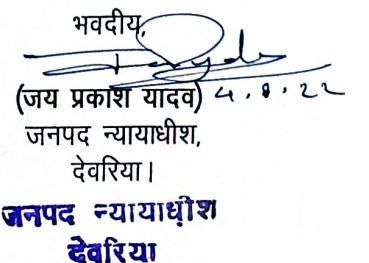 भवदीय,
(जय प्रकाश यादव) 4.8.22
जनपद न्यायाधीश,
देवरिया।
जनपद न्यायाधीश
देवरिया